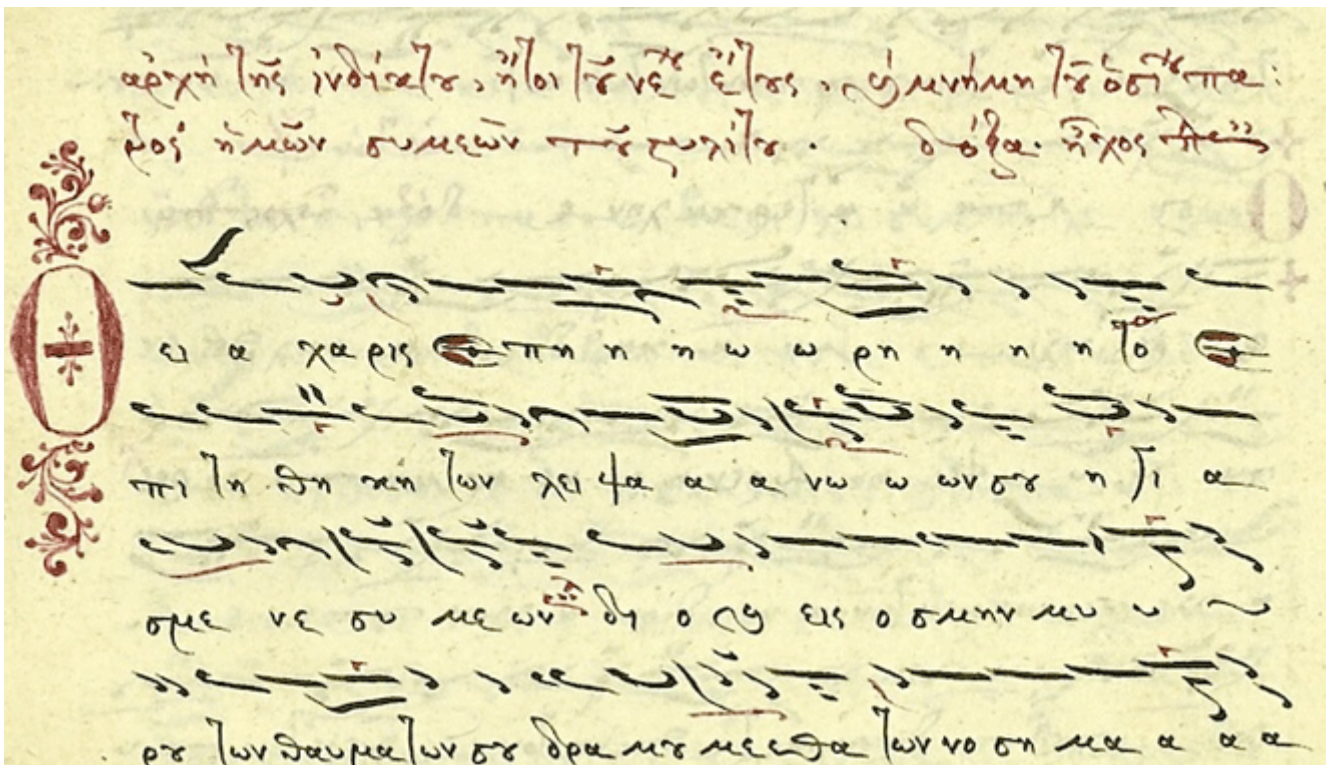 ἀρχὴ τῆς ἰνδίκτου, ἤτοι τοῦ νέου ἔτους, καὶ μνήμη τοῦ ὁσίου πα:
τρὸς ἡμῶν συμεὼν τοῦ στυλίτου. δόξα. ἦχος
Θ ει α χα ρις απ η η η ω ω ρη η η η το
πι τη θη κη των λει ψα α α νω ω ων σου η γι α
σμε νε συ με ων δι ο και εις ο σμην μυ υ υ
ρου των θαυμα των σου δρα μου με ε θα των νο ση μα α α α